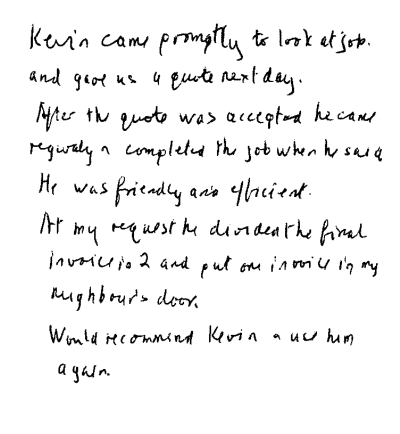 Kevin came promptly to look at job.
and gave us a quote next day.
After the quote was accepted he came
regularly & completed the job when he said
He was friendly and efficient.
At my request he divided the final
invoice in 2 and put one invoice in my
neighbour's door.
Would recommend Kevin & use him
again.